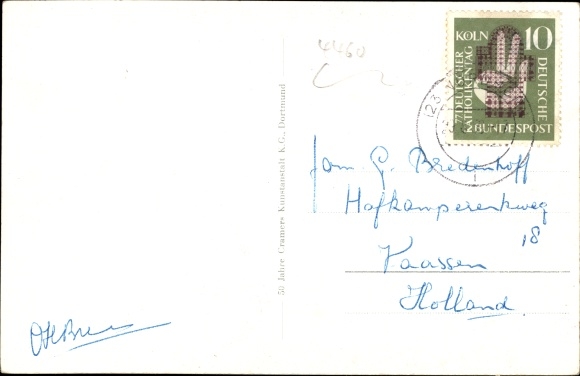 4460
KÖLN 10
77. DEUTSCHER
KATHOLIKENTAG
DEUTSCHE
BUNDESPOST
50 Jahre Cramers Kunstanstalt K.G., Dortmund
Fam. G. Bredenhoff
Hafkamperenkweg
18
Vaassen
Holland